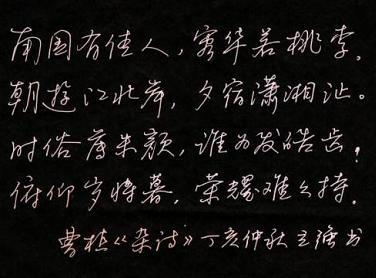 南国有佳人，容华若桃李。
朝游江北岸，夕宿潇湘沚。
时俗薄朱颜，谁为发皓齿？
俯仰岁将暮，荣耀难久持。
曹植《杂诗》丁亥仲秋 书